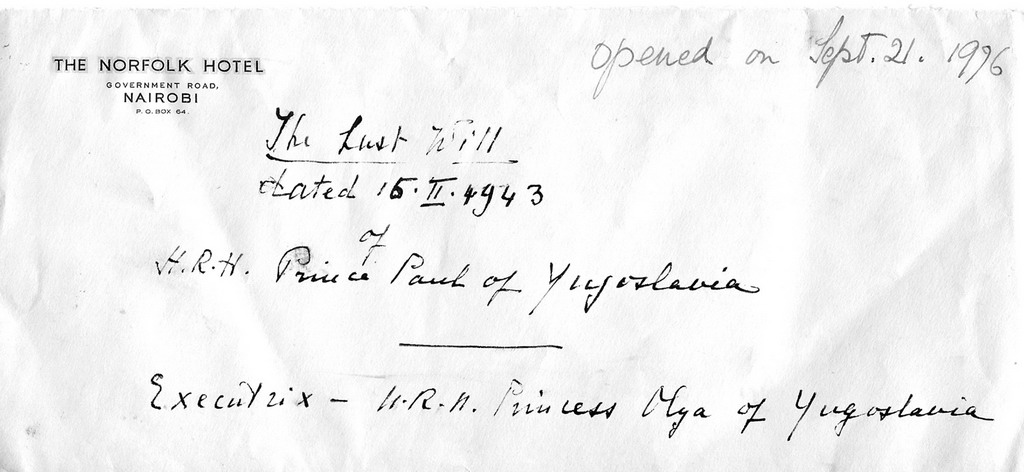 THE NORFOLK HOTEL
GOVERNMENT ROAD,
NAIROBI
P.O. BOX 64.
Opened on Sept. 21. 1976
The Last Will
dated 15.II.1943
of
H.R.H. Prince Paul of Yugoslavia
Executrix – H.R.H. Princess Olga of Yugoslavia